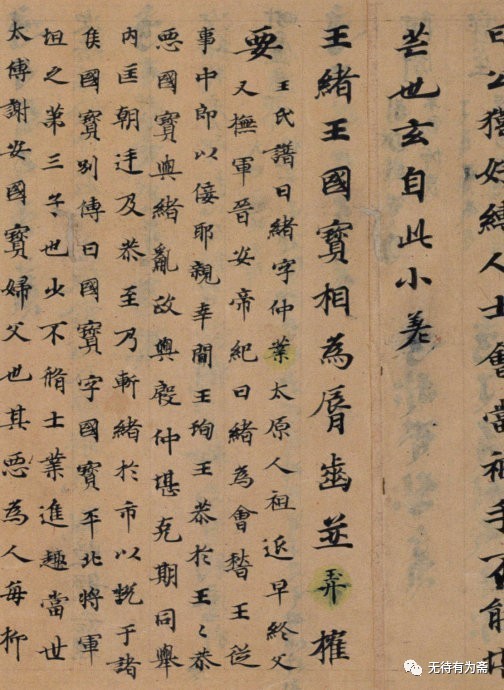 曰公獦好縛人士會當被手不能堪
芒也玄自此小差
王緒王國寶相為脣齒並弄權
要王氏譜曰緒字仲業太原人祖延早終父
又撫軍晉安帝紀曰緒為會稽王從
事中郎以佞耶親幸間王珣王恭於王〻恭
惡國寶與緒亂政與殷仲堪克期同舉
內匡朝廷及恭至乃斬緒於市以說于諸
侯國寶別傳曰國寶字國寶平北將軍
坦之第三子也少不脩士業進趣當世
太傅謝安國寶婦父也其惡為人每抑
无待有为斋